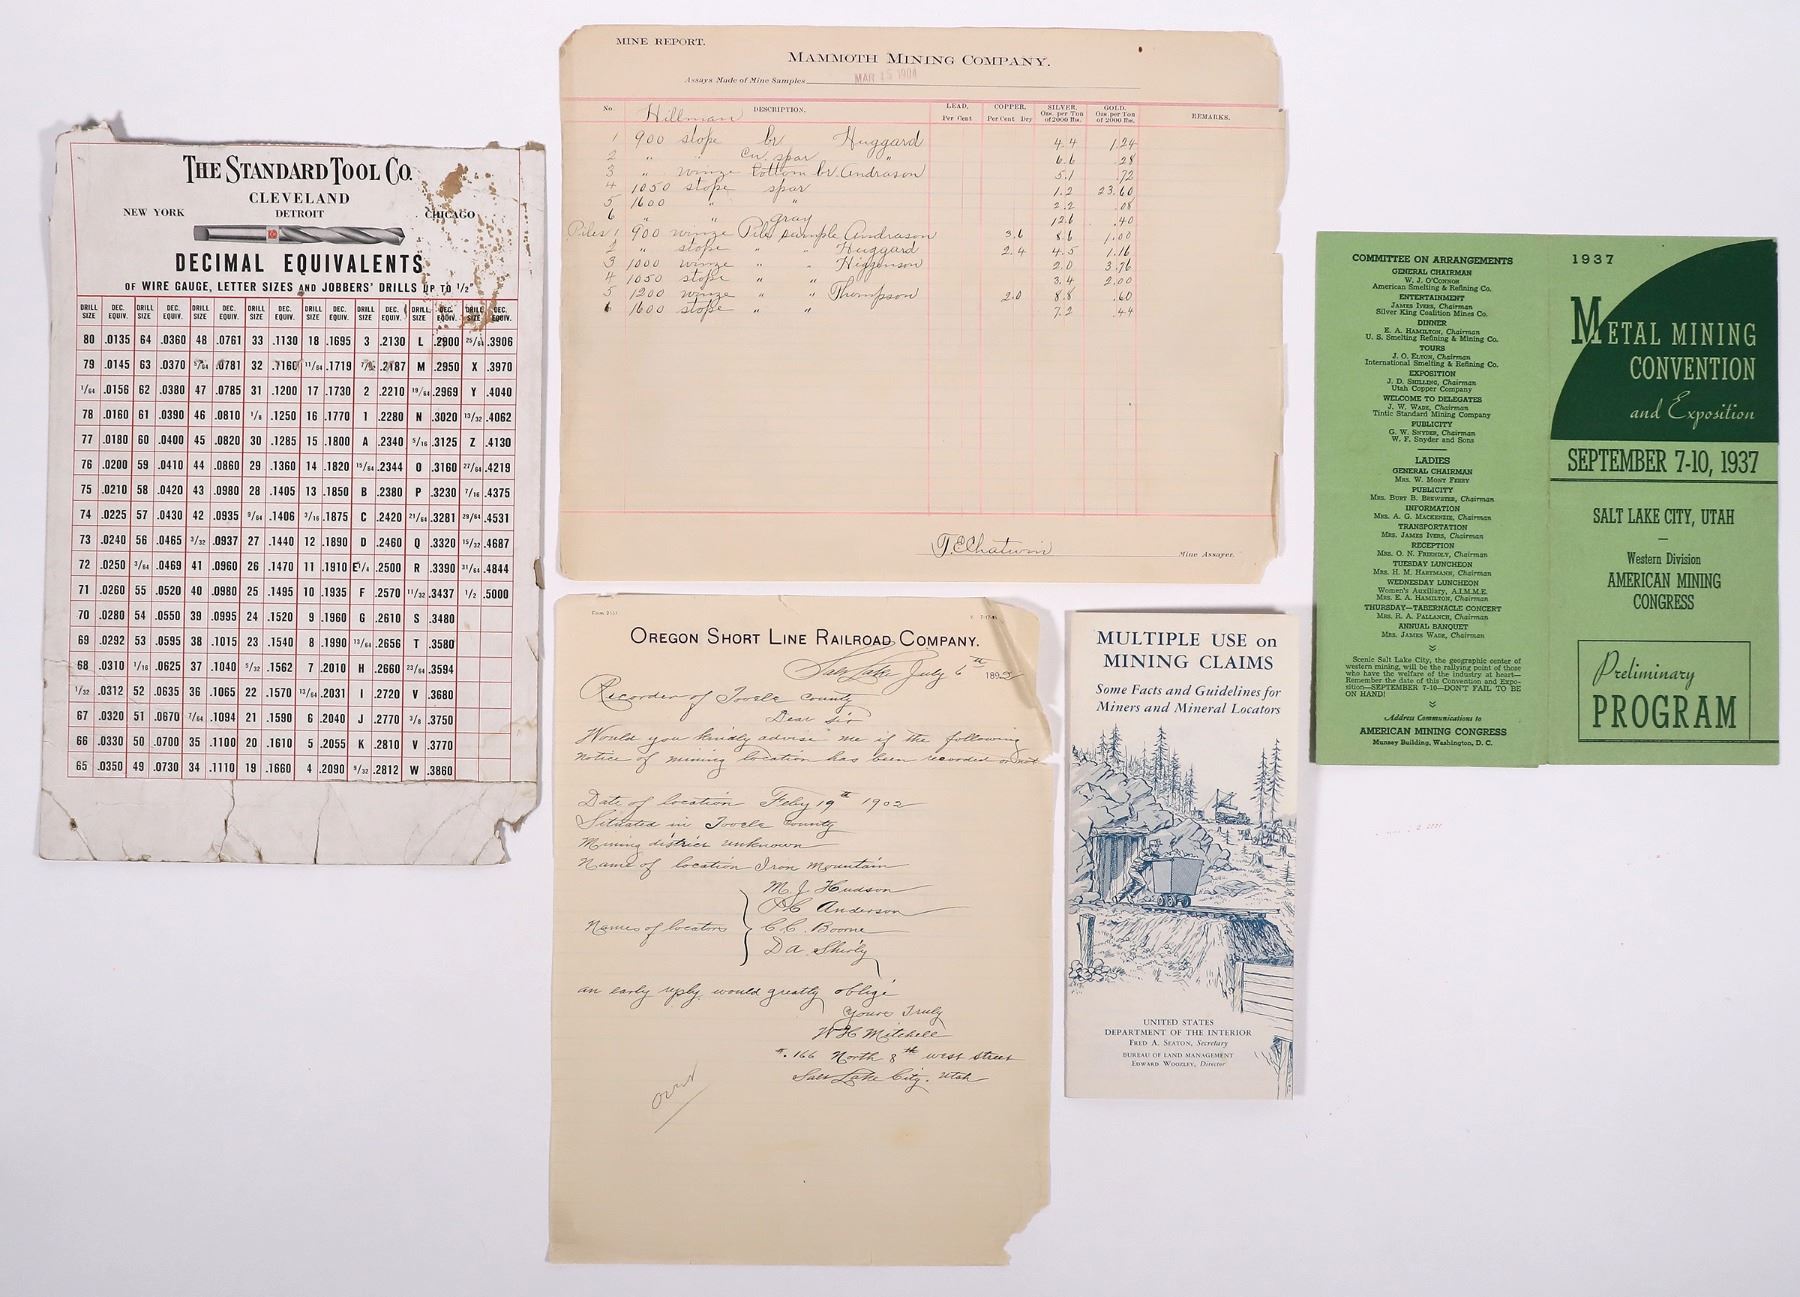 THE STANDARD TOOL CO.
CLEVELAND
NEW YORK DETROIT CHICAGO
DECIMAL EQUIVALENTS
OF WIRE GAUGE, LETTER SIZES AND JOBBERS' DRILLS UP TO 1/2"
DRILL SIZE DEC. EQUIV. DRILL SIZE DEC. EQUIV. DRILL SIZE DEC. EQUIV. DRILL SIZE DEC. EQUIV. DRILL SIZE DEC. EQUIV. DRILL SIZE DEC. EQUIV. DRILL SIZE DEC. EQUIV. DRILL SIZE DEC. EQUIV.
80 .0135 64 .0360 48 .0761 33 .1130 18 .1695 3 .2130 L .2900 25/64 .3906
79 .0145 63 .0370 5/64 .0781 32 .1160 11/64 .1719 7/32 .2187 M .2950 X .3970
1/64 .0156 62 .0380 47 .0785 31 .1200 17 .1730 2 .2210 19/64 .2969 Y .4040
78 .0160 61 .0390 46 .0810 1/8 .1250 16 .1770 1 .2280 N .3020 13/32 .4062
77 .0180 60 .0400 45 .0820 30 .1285 15 .1800 A .2340 5/16 .3125 Z .4130
76 .0200 59 .0410 44 .0860 29 .1360 14 .1820 15/64 .2344 O .3160 27/64 .4219
75 .0210 58 .0420 43 .0980 28 .1405 13 .1850 B .2380 P .3230 7/16 .4375
74 .0225 57 .0430 42 .0935 9/64 .1406 3/16 .1875 C .2420 21/64 .3281 29/64 .4531
73 .0240 56 .0465 3/32 .0937 27 .1440 12 .1890 D .2460 Q .3320 15/32 .4687
72 .0250 3/64 .0469 41 .0960 26 .1470 11 .1910 E 1/4 .2500 R .3390 31/64 .4844
71 .0260 55 .0520 40 .0980 25 .1495 10 .1935 F .2570 11/32 .3437 1/2 .5000
70 .0280 54 .0550 39 .0995 24 .1520 9 .1960 G .2610 S .3480
69 .0292 53 .0595 38 .1015 23 .1540 8 .1990 13/64 .2656 T .3580
68 .0310 1/16 .0625 37 .1040 5/32 .1562 7 .2010 H .2660 23/64 .3594
1/32 .0312 52 .0635 36 .1065 22 .1570 13/64 .2031 I .2720 V .3680
67 .0320 51 .0670 7/64 .1094 21 .1590 6 .2040 J .2770 3/8 .3750
66 .0330 50 .0700 35 .1100 20 .1610 5 .2055 K .2810 V .3770
65 .0350 49 .0730 34 .1110 19 .1660 4 .2090 9/32 .2812 W .3860
MINE REPORT.
MAMMOTH MINING COMPANY.
Assays Made of Mine Samples MAR 15 1904
No. DESCRIPTION. LEAD. Per Cent COPPER. Per Cent Dry SILVER. Ozs. per Ton of 2000 lbs. GOLD. Ozs. per Ton of 2000 lbs. REMARKS.
Hillman
1 900 stope br Huggard 4.4 1.24
2 " " Cu. spar " 6.6 .28
3 " winze bottom br. Andrason 5.1 .72
4 1050 stope spar 1.2 23.60
5 1600 " " 2.2 .08
6 " " gray 12.6 .40
Piles 1 900 winze Pile sample Andrason 3.6 8.6 1.00
2 " stope " " Huggard 2.4 4.5 1.16
3 1000 winze " " Higgenson 2.0 3.76
4 1050 stope " " 3.4 2.00
5 1200 winze " " Thompson 2.0 8.8 .60
6 1600 stope " " 7.2 .44
T. E. Chatwin Mine Assayer.
Form 2151
OREGON SHORT LINE RAILROAD COMPANY.
Salt Lake, July 6th 1892
Recorder of Tooele County
Dear Sir
Would you kindly advise me if the following
notice of mining location has been recorded or not
Date of location Feby 19th 1902
Situated in Tooele County
Mining district unknown
Name of location Iron Mountain
M. J. Hudson
Anderson
Names of locators C. C. Boone
D A. Sherly
an early reply, would greatly oblige
Yours Truly
W H Mitchell
#. 166 North 8th west street
Salt Lake City. Utah
over
MULTIPLE USE on
MINING CLAIMS
Some Facts and Guidelines for
Miners and Mineral Locators
UNITED STATES
DEPARTMENT OF THE INTERIOR
FRED A. SEATON, Secretary
BUREAU OF LAND MANAGEMENT
EDWARD WOOZLEY, Director
COMMITTEE ON ARRANGEMENTS
GENERAL CHAIRMAN
W. J. O'CONNOR
American Smelting & Refining Co.
ENTERTAINMENT
JAMES IVERS, Chairman
Silver King Coalition Mines Co.
DINNER
E. A. HAMILTON, Chairman
U. S. Smelting Refining & Mining Co.
TOURS
J. O. ELTON, Chairman
International Smelting & Refining Co.
EXPOSITION
J. D. SHILLING, Chairman
Utah Copper Company
WELCOME TO DELEGATES
J. W. WADE, Chairman
Tintic Standard Mining Company
PUBLICITY
G. W. SNYDER, Chairman
W. F. Snyder and Sons
LADIES
GENERAL CHAIRMAN
MRS. W. MONT FERRY
PUBLICITY
MRS. BURT B. BREWSTER, Chairman
INFORMATION
MRS. A. G. MACKENZIE, Chairman
TRANSPORTATION
MRS. JAMES IVERS, Chairman
RECEPTION
MRS. O. N. FRIENDLY, Chairman
TUESDAY LUNCHEON
MRS. H. M. HARTMANN, Chairman
WEDNESDAY LUNCHEON
Women's Auxiliary, A.I.M.M.E.
MRS. E. A. HAMILTON, Chairman
THURSDAY—TABERNACLE CONCERT
MRS. R. A. PALLANCH, Chairman
ANNUAL BANQUET
MRS. JAMES WADE, Chairman
Scenic Salt Lake City, the geographic center of
western mining, will be the rallying point of those
who have the welfare of the industry at heart—
Remember the date of this Convention and Expo-
sition—SEPTEMBER 7-10—DON'T FAIL TO BE
ON HAND!
Address Communications to
AMERICAN MINING CONGRESS
Munsey Building, Washington, D. C.
1937
METAL MINING
CONVENTION
and Exposition
SEPTEMBER 7-10, 1937
SALT LAKE CITY, UTAH
Western Division
AMERICAN MINING
CONGRESS
Preliminary
PROGRAM